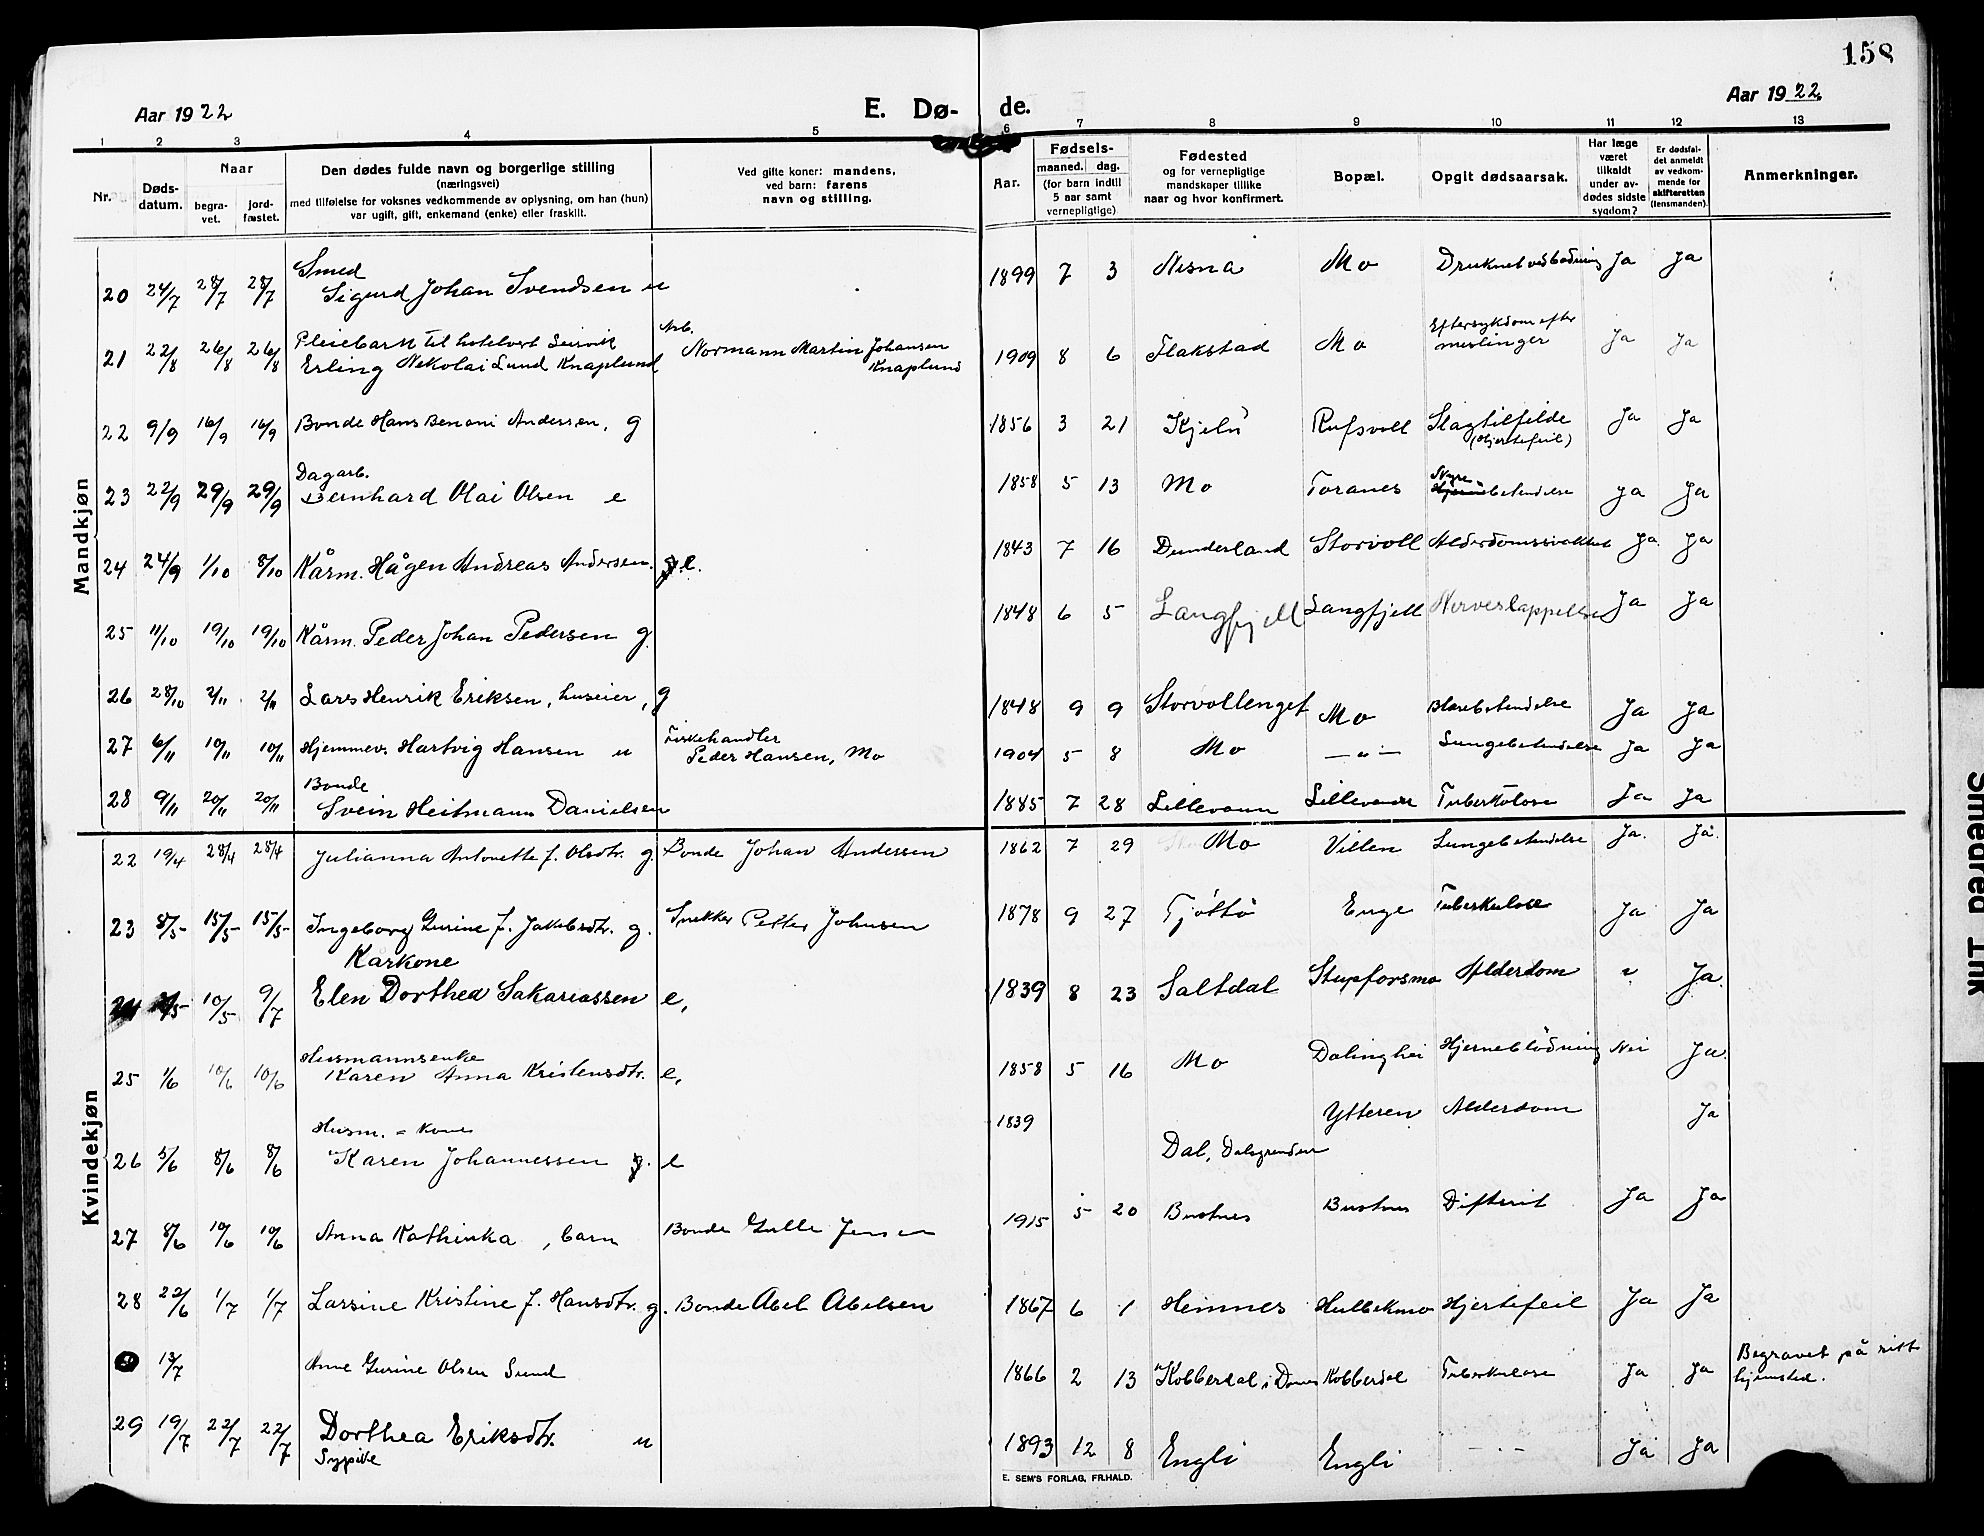 158
Aar 1922
E. Dø-
de.
Aar 1922.
1 2 3 4 5 6 7 8 9 10 11 12 13
Nr.
Døds-
datum.
Naar
begra-
vet.
jord-
fæstet.
Den dødes fulde navn og borgerlige stilling
(næringsvei)
med tilføielse for voksnes vedkommende av oplysning, om han (hun)
var ugift, gift, enkemand (enke) eller fraskilt.
Ved gifte koner: mandens,
ved barn: farens
navn og stilling.
Aar.
Fødsels-
maaned. dag.
(for barn indtil
5 aar samt
vernepligtige)
Fødested
og for vernepligtige
mandskaper tillike
naar og hvor konfirmert.
Bopæl.
Opgit dødsaarsak.
Har læge
været
tilkaldt
under av-
dødes sidste
sygdom?
Er dødsfal-
det anmeldt
av vedkom-
mende for
skifteretten
(lensmanden).
Anmerkninger.
Mandkjøn
Smed
20 24/7 28/7 28/7 Sigurd Johan Svendsen u 1899 7 3 Nesna Mo Druknet ved badning Ja Ja
Pleiebarn til hotelvert Seisvik Arb. Eftersykdom efter
21 22/8 26/8 26/8 Erling Nekolai Lund Knaplund Normann Martin Johansen Knaplund 1909 8 6 Flakstad Mo meslinger Ja Ja
22 9/9 16/9 16/9 Bonde Hans Benoni Andersen, g 1856 3 21 Kjelö Rufsvoll Slagtilfelde Ja Ja
(Hjertefeil)
Dagarb. Nyre
23 22/9 29/9 29/9 Bernhard Olai Olsen e 1858 5 13 Mo Toranes betendelse Ja Ja
24 24/9 1/10 8/10 Kårm. Hågen Andreas Andersen. e. 1843 7 16 Dunderland Storvoll Alderdomssvakhet Ja Ja
25 11/10 19/10 19/10 Kårm. Peder Johan Pedersen g. 1848 6 5 Langfjell Langfjell Nerveslappelse Ja Ja
26 28/10 2/11 2/11 Lars Henrik Eriksen, huseier, g 1848 9 9 Storvollenget Mo Blærebetendelse Ja Ja
Fiskehandler
27 6/11 10/11 10/11 Hjemmev. Hartvig Hansen u Peder Hansen, Mo 1904 5 8 Mo — " — Lungebetendelse Ja Ja
Bonde
28 9/11 20/11 20/11 Svein Heitmann Danielsen 1885 7 28 Lillevann Lillevann Tuberkulose Ja Ja
Kvindekjøn
22 19/4 28/4 28/4 Julianna Antonette f. Olsdtr. g. Bonde Johan Andersen 1862 7 29 Mo Villen Lungebetendelse Ja. Ja.
23 8/5 15/5 15/5 Ingeborg Gurine f. Jakobsdtr. g. Snekker Petter Johnsen 1878 9 27 Tjöttö Enge Tuberkulose Ja Ja
Kårkone
24 10/5 9/7 Elen Dorthea Sakariassen e, 1839 8 23 Saltdal Stupforsmo Alderdom " Ja.
Husmannsenke
25 1/6 10/6 10/6 Karen Anna Kristensdtr. e, 1858 5 16 Mo Dalinghei Hjerneblödning Nei Ja.
Husm. = Kone
26 5/6 8/6 8/6 Karen Johannessen e 1839 Dal, Dalsgrenden Ytteren Alderdom Ja
27 8/6 10/6 10/6 Anna Kathinka, barn Bonde Gulle Jensen 1915 5 20 Bustnes Bustnes Difterit Ja Ja
28 22/6 1/7 1/7 Larsine Kristine f. Hansdtr. g. Bonde Abel Abelsen 1867 6 1 Hemnes Hulbekmo Hjertefeil Ja Ja
13/7 Anne Gurine Olsen Sund 1866 2 13 Kobberdal i Dønnes Kobberdal Tuberkulose Ja Ja Begravet på sitt
hjemsted.
29 19/7 22/7 22/7 Dorthea Eriksdtr. u 1893 12 8 Engli Engli — " — Ja Ja
Sypike
E. SEM'S FORLAG, FR.HALD.
Smedred Trik